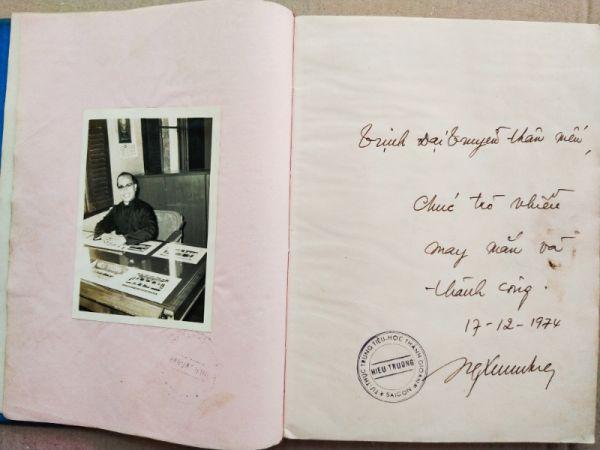 Trịnh Đại Truyền thân mến,
Chúc trò nhiều
may mắn và
thành công.
17-12-1974
TƯ THỤC TRUNG TIỂU-HỌC THÁNH GIOAN
HIỆU TRƯỞNG
★ SAIGON ★